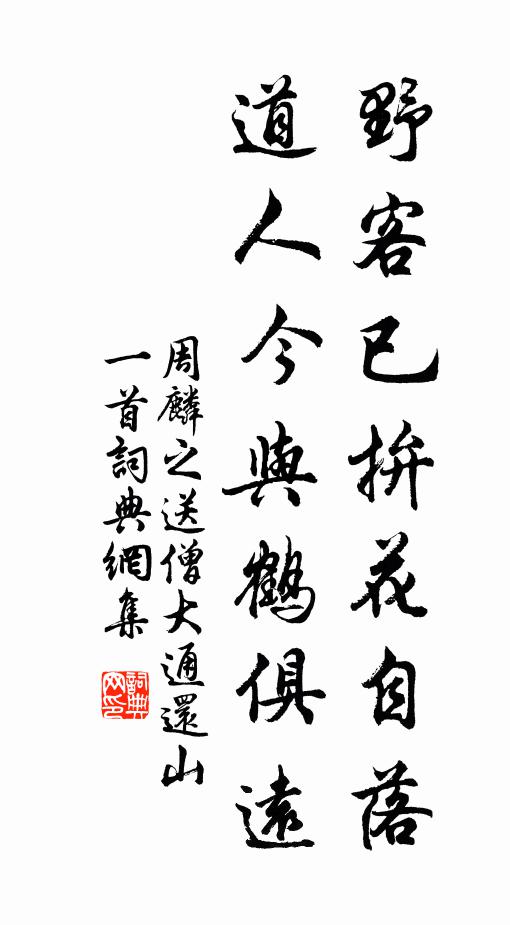 野客已拚花自落
道人今與鶴俱遠
周麟之送僧大通還山
一首詞典網集
詞典
网印